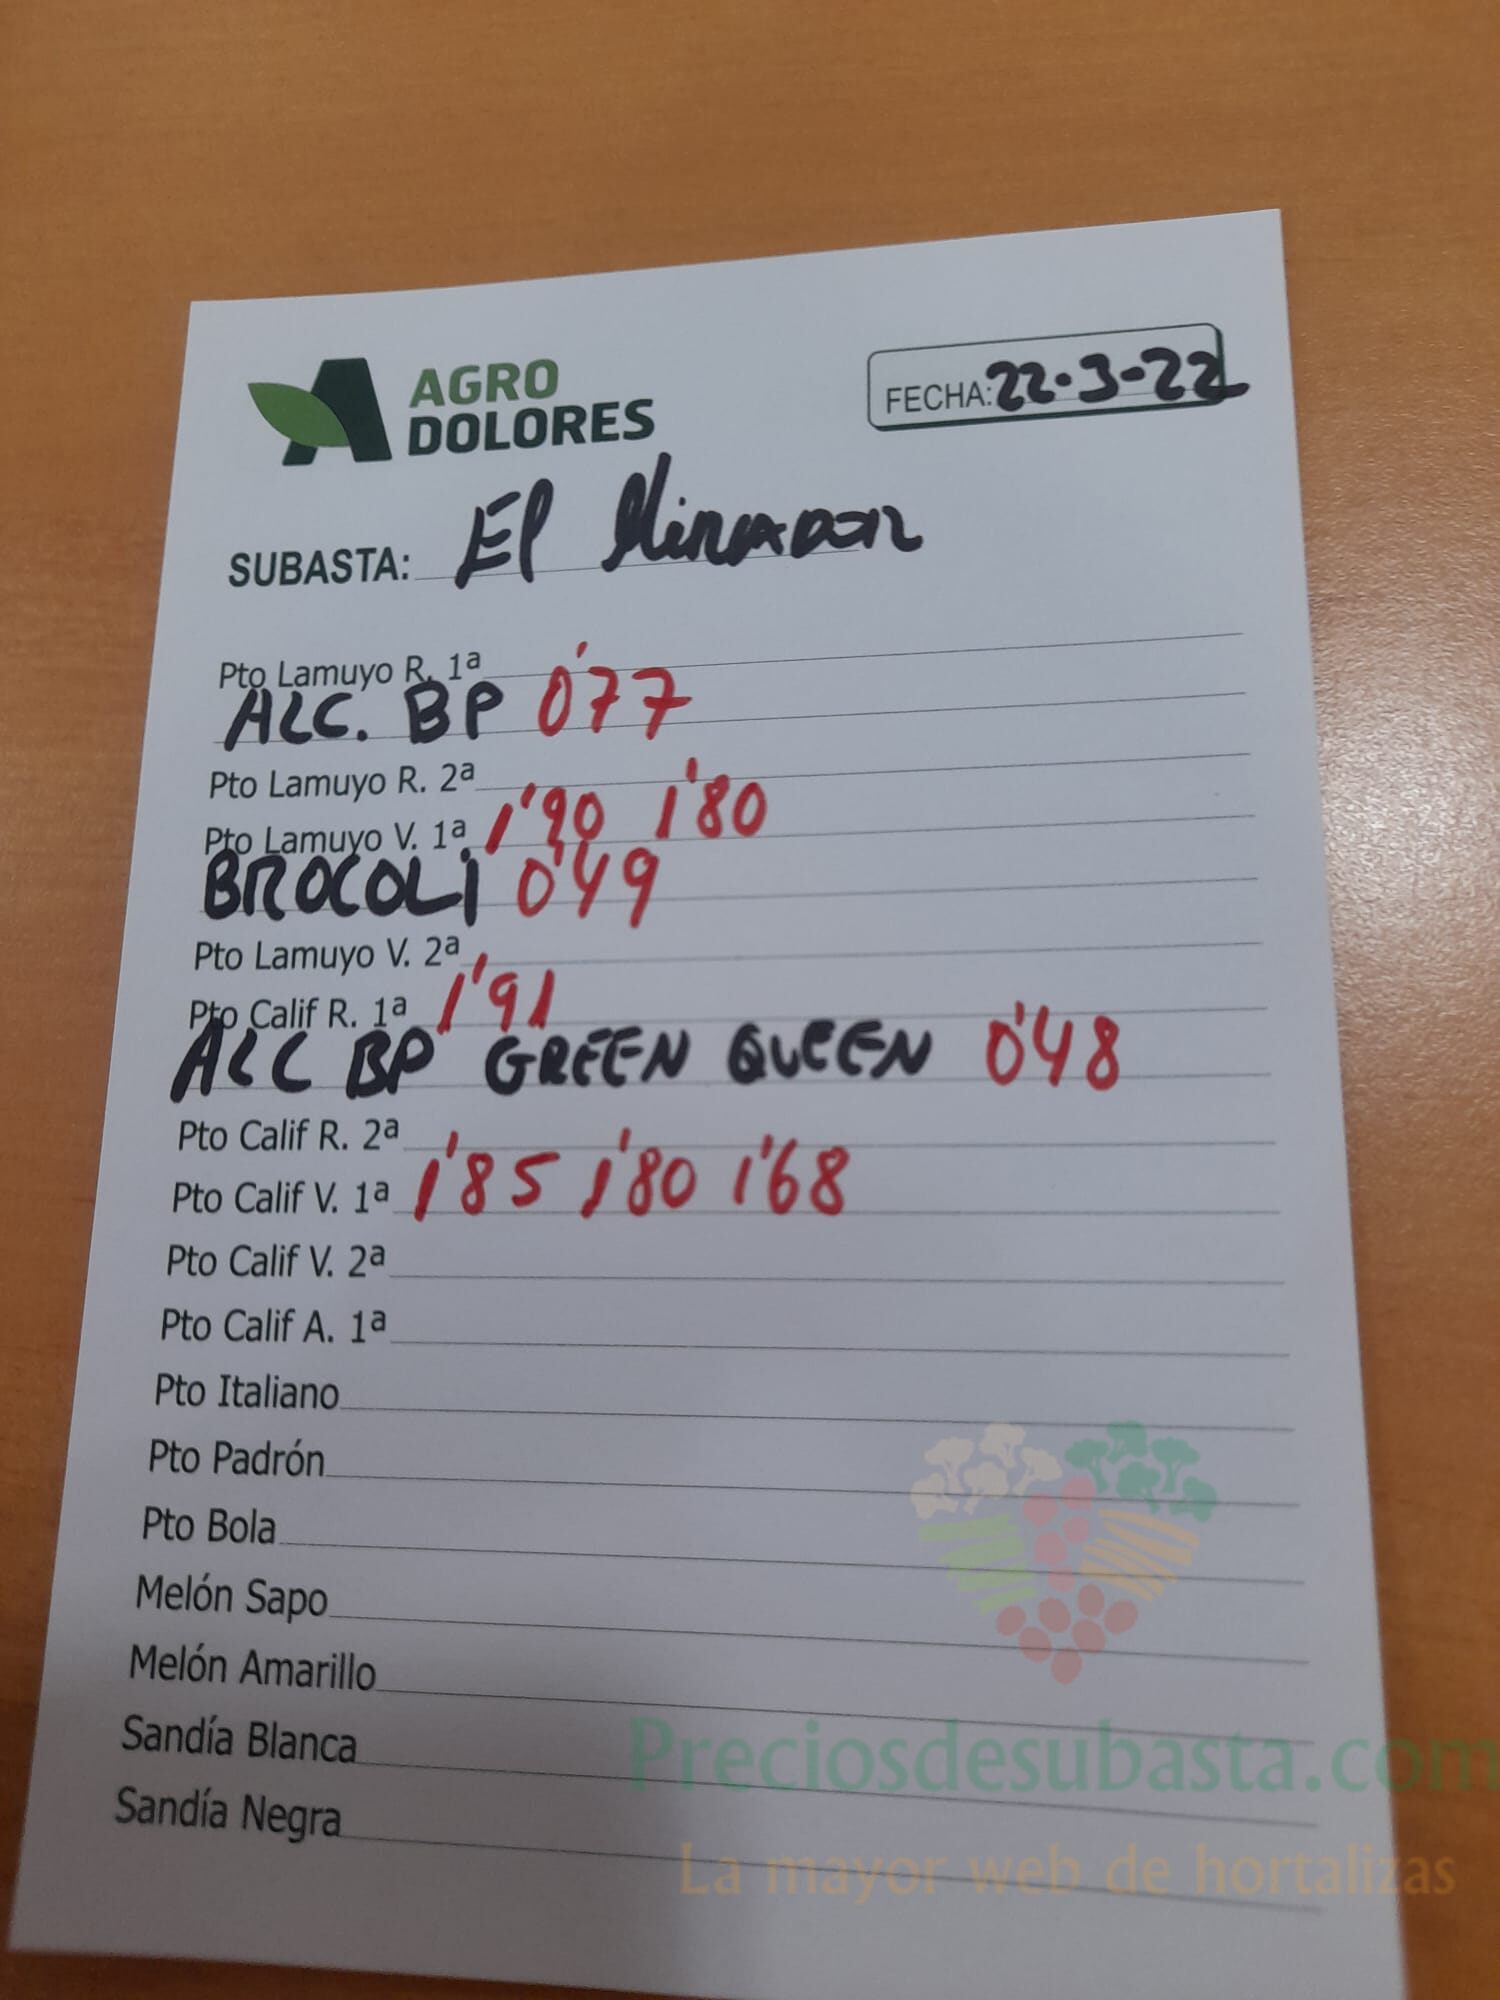 AGRO
DOLORES
FECHA: 22-3-22
SUBASTA: El Mirador
Pto Lamuyo R. 1ª
ALC. BP 0'77
Pto Lamuyo R. 2ª
Pto Lamuyo V. 1ª 1'90 1'80
BROCOLI 0'49
Pto Lamuyo V. 2ª
Pto Calif R. 1ª 1'91
ALC BP GREEN QUEEN 0'48
Pto Calif R. 2ª
Pto Calif V. 1ª 1'85 1'80 1'68
Pto Calif V. 2ª
Pto Calif A. 1ª
Pto Italiano
Pto Padrón
Pto Bola
Melón Sapo
Melón Amarillo
Sandía Blanca
Sandía Negra
Preciosdesubasta.com
La mayor web de hortalizas